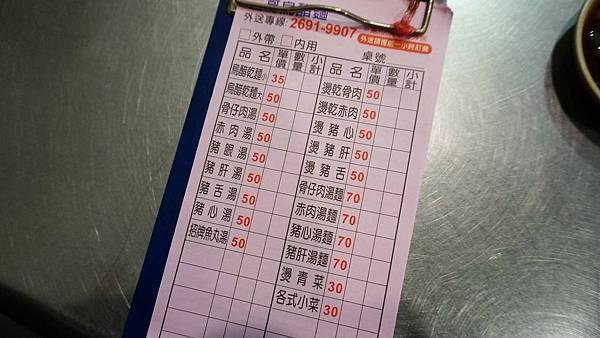 外送專線: 2691-9907
外送請提前一小時訂餐
□外帶 □內用 桌號
品名 單價 數量 小計
烏醋乾麵小 35
烏醋乾麵大 50
骨仔肉湯 50
赤肉湯 50
豬眼湯 50
豬肝湯 50
豬舌湯 50
豬心湯 50
招牌魚丸湯 50
品名 單價 數量 小計
燙乾骨肉 50
燙乾赤肉 50
燙豬心 50
燙豬肝 50
燙豬舌 50
骨仔肉湯麵 70
赤肉湯麵 70
豬心湯麵 70
豬肝湯麵 70
燙青菜 30
各式小菜 30